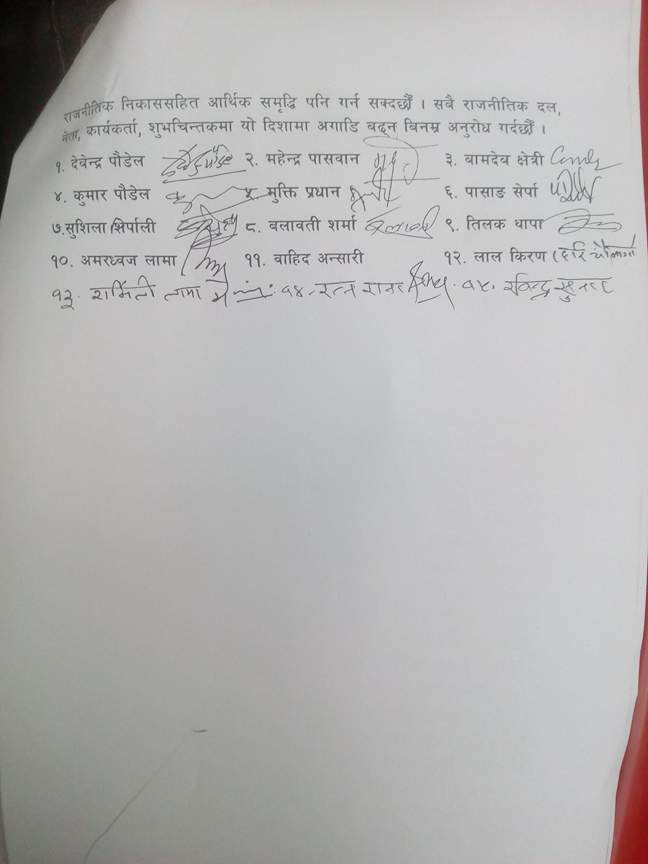 राजनीतिक निकाससहित आर्थिक समृद्धि पनि गर्न सक्दछौँ । सबै राजनीतिक दल,
नेता, कार्यकर्ता, शुभचिन्तकमा यो दिशामा अगाडि बढ्न विनम्र अनुरोध गर्दछौँ ।
१. देवेन्द्र पौडेल २. महेन्द्र पासवान ३. वामदेव क्षेत्री
४. कुमार पौडेल ५ मुक्ति प्रधान ६. पासाङ सेर्पा
७.सुशिला सिर्पाली ८. बलावती शर्मा ९. तिलक थापा
१०. अमरध्वज लामा ११. वाहिद अन्सारी १२. लाल किरण (हरि
१३. शर्मिली लामा १४. रत्न १५. रविन्द्र सुनार